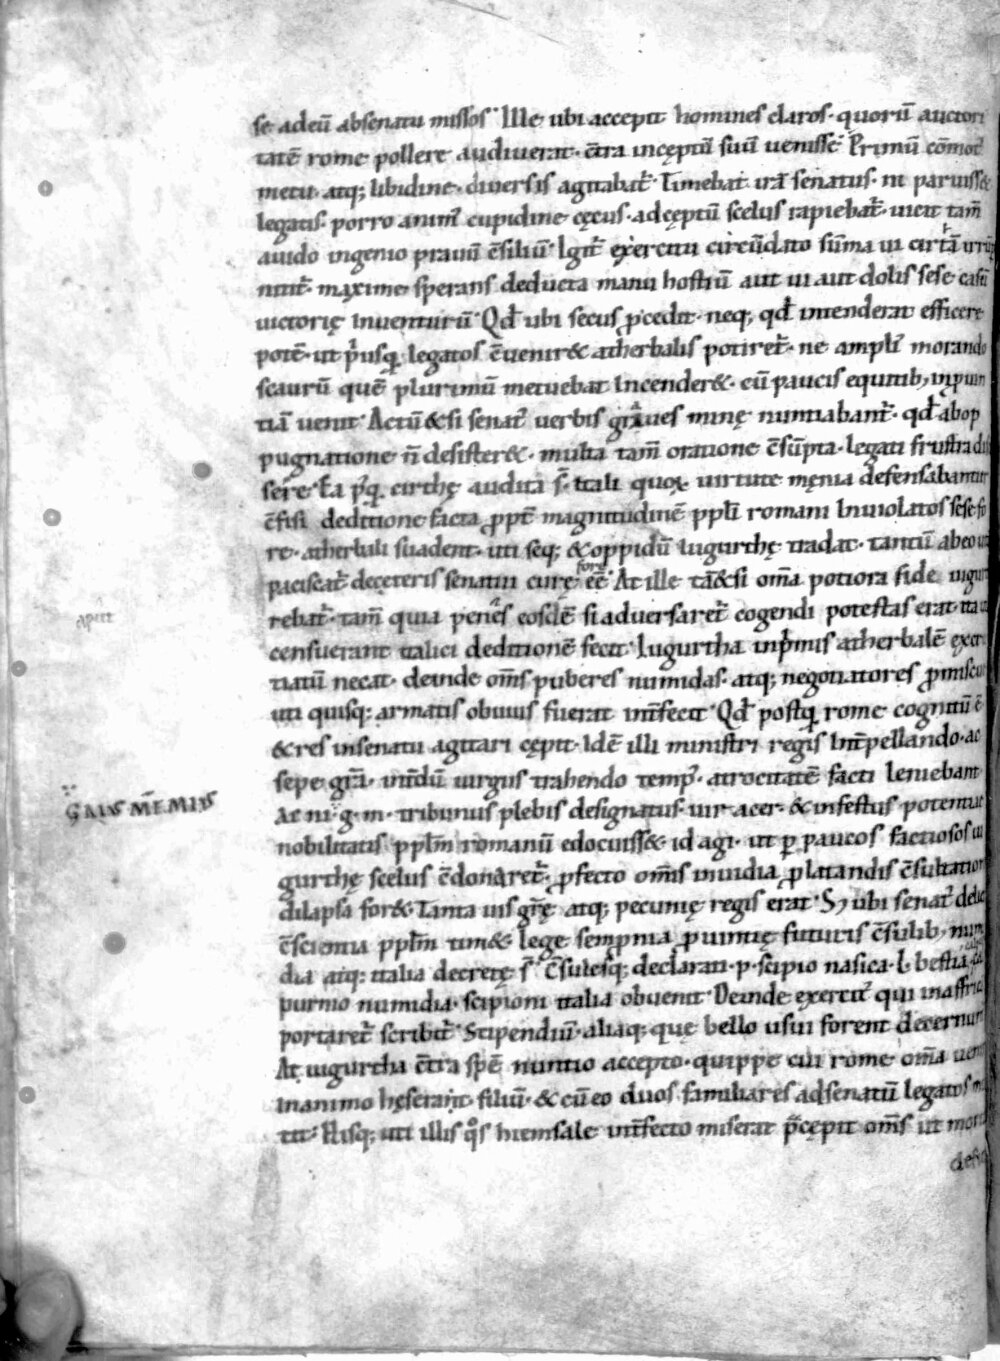 se adeū absenatu missos· Ille ubi accepit homines claros· quorū auctori
tatē rome pollere audiuerat· c̄tra incęptū suū uenisse· Primū cōmot᷒
metu· atq; libidine· diuersis agitabat᷒· Timebat irā senatus· ni paruiss&
legatis· porro anim᷒ cupidine cęcus· adcęptū scelus rapiebat᷒· uicit tam̄
auido ingenio prauū c̄siliū· Igit᷒ exercitu circūdato sūma ui cirtā irrū
nitit᷒· maxime sperans deducta manu hostiū aut ui aut dolis sese casū
uictorię inuenturū· Qd̄ ubi secus p̄cedit· neq; qd̄ intenderat efficere
potē· ut p᷒usq̄ legatos c̄uenir& atherbalis potiret᷒· ne ampli᷒ morando
scaurū quē plurimū metuebat incender&· cū paucis equitib; inprouin
tiā uenit· Actū&si senat᷒ uerbis graues minę nuntiabant᷒· qd̄ abop
pugnatione n̄ desister&· multa tam̄ oratione c̄sūpta· legati frustra dis
sere· Ea p᷒q̄ cirthę audita s̄· itali quoꝝ uirtute męnia defensabantur
c̄fisi deditione facta ꝓpt᷒ magnitudinē ppl̄i romani inuiolatos sese fo
re· atherbali suadent· uti seq; & oppidū iugurthę tradat· tantū abeo uitā
paciscat᷒ decęteris senatui curę fore ee᷒· At ille tā&si om̄a potiora fide iugur
rebat᷒· tam̄ quia penes eosdē si aduersaret᷒ cogendi potestas erat· ita ut
censuerant italici deditionē fecit· Iugurtha inp᷒mis atherbalē excru
tiatū necat· deinde om̄s puberes numidas· atq; negotiatores p̄miscue
uti quisq; armatis obuius fuerat int̄fecit· Qd̄ postq̄ rome cognitū ē
& res insenatu agitari cępit· Idē illi ministri regis int̄pellando· ac
sepe grā· int̄dū iurgiis trahendo temp᷒· atrocitatē facti leniebant
Ac ni· g· m· tribunus plebis designatus· uir acer· & infestus· potentiae
nobilitatis ppl̄m romanū edocuiss& id agi· ut ꝑ paucos factiosos iu
gurthę scelus c̄donaret᷒· p̄fecto om̄s inuidia p̄latandis c̄sultation
dilapsa for&· Tanta uis grę atq; pecunię regis erat· S; ubi senat᷒ delic
c̄scientia ppl̄m tim& lege sempronia prouintię futuris c̄sulib; num
dia atq; italia decretę s̄· C̄sulesq; declarati· p· scipio nasica· l· bestia
purnio numidia· scipioni italia obuenit· Deinde exercit᷒ qui inaffrica
portaret᷒ scribit᷒· Stipendiū· aliaq; quę bello usui forent decernun
At iugurtha c̄tra spē nuntio accepto· quippe cui rome om̄a uenir
inanimo hęserant· filiū· & cū eo duos familiares adsenatū legatos mi
tit· Hisq; uti illis q̊s hiemsale int̄fecto miserat p̄cępit om̄s ut mort
apite
GAIUS MĒMIUS